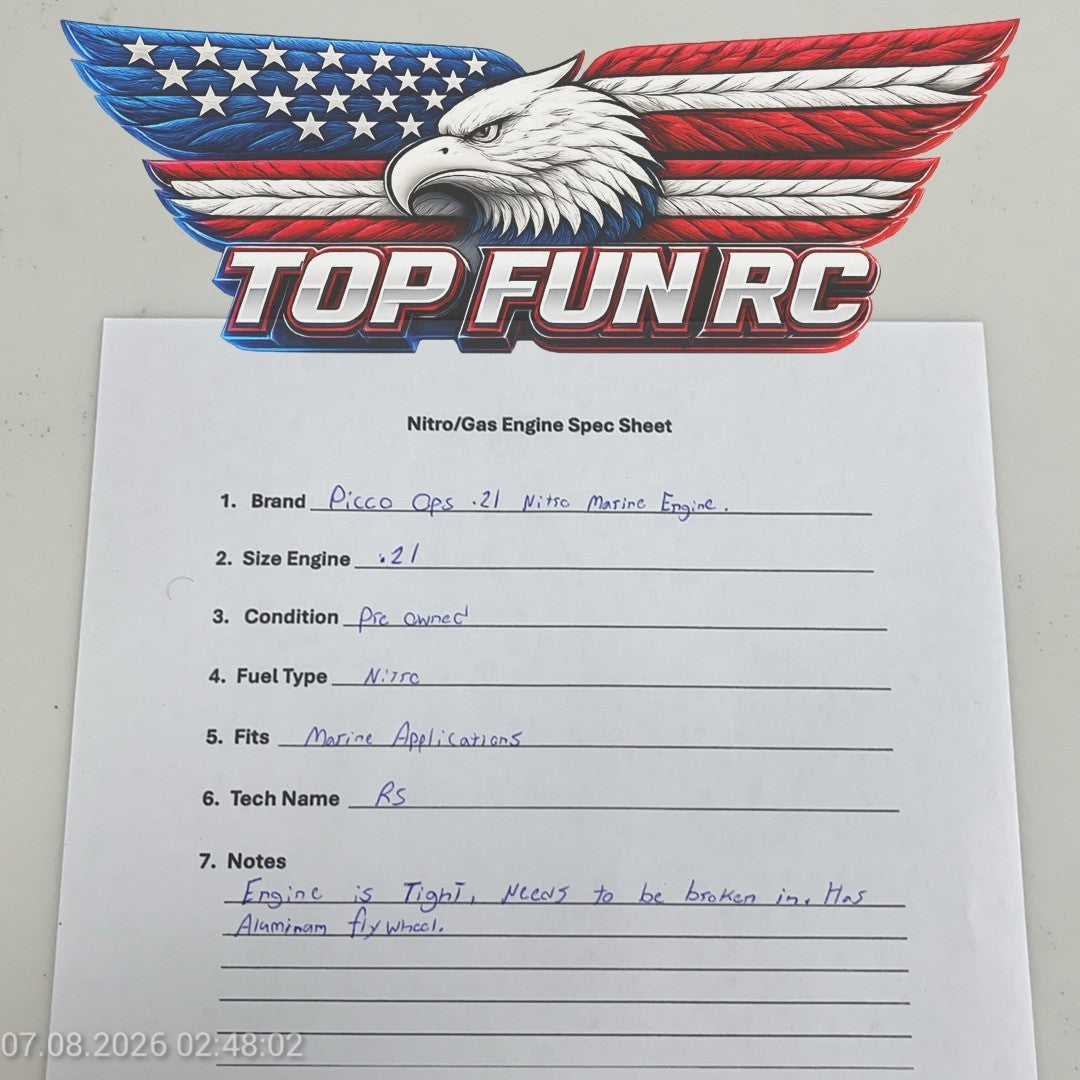 TOP FUN RC
Nitro/Gas Engine Spec Sheet
1. Brand Picco Ops .21 Nitro Marine Engine.
2. Size Engine .21
3. Condition Pre owned
4. Fuel Type Nitro
5. Fits Marine Applications
6. Tech Name RS
7. Notes
Engine is Tight, Needs to be broken in. Has
Aluminam flywheel.
07.08.2026 02:48:02